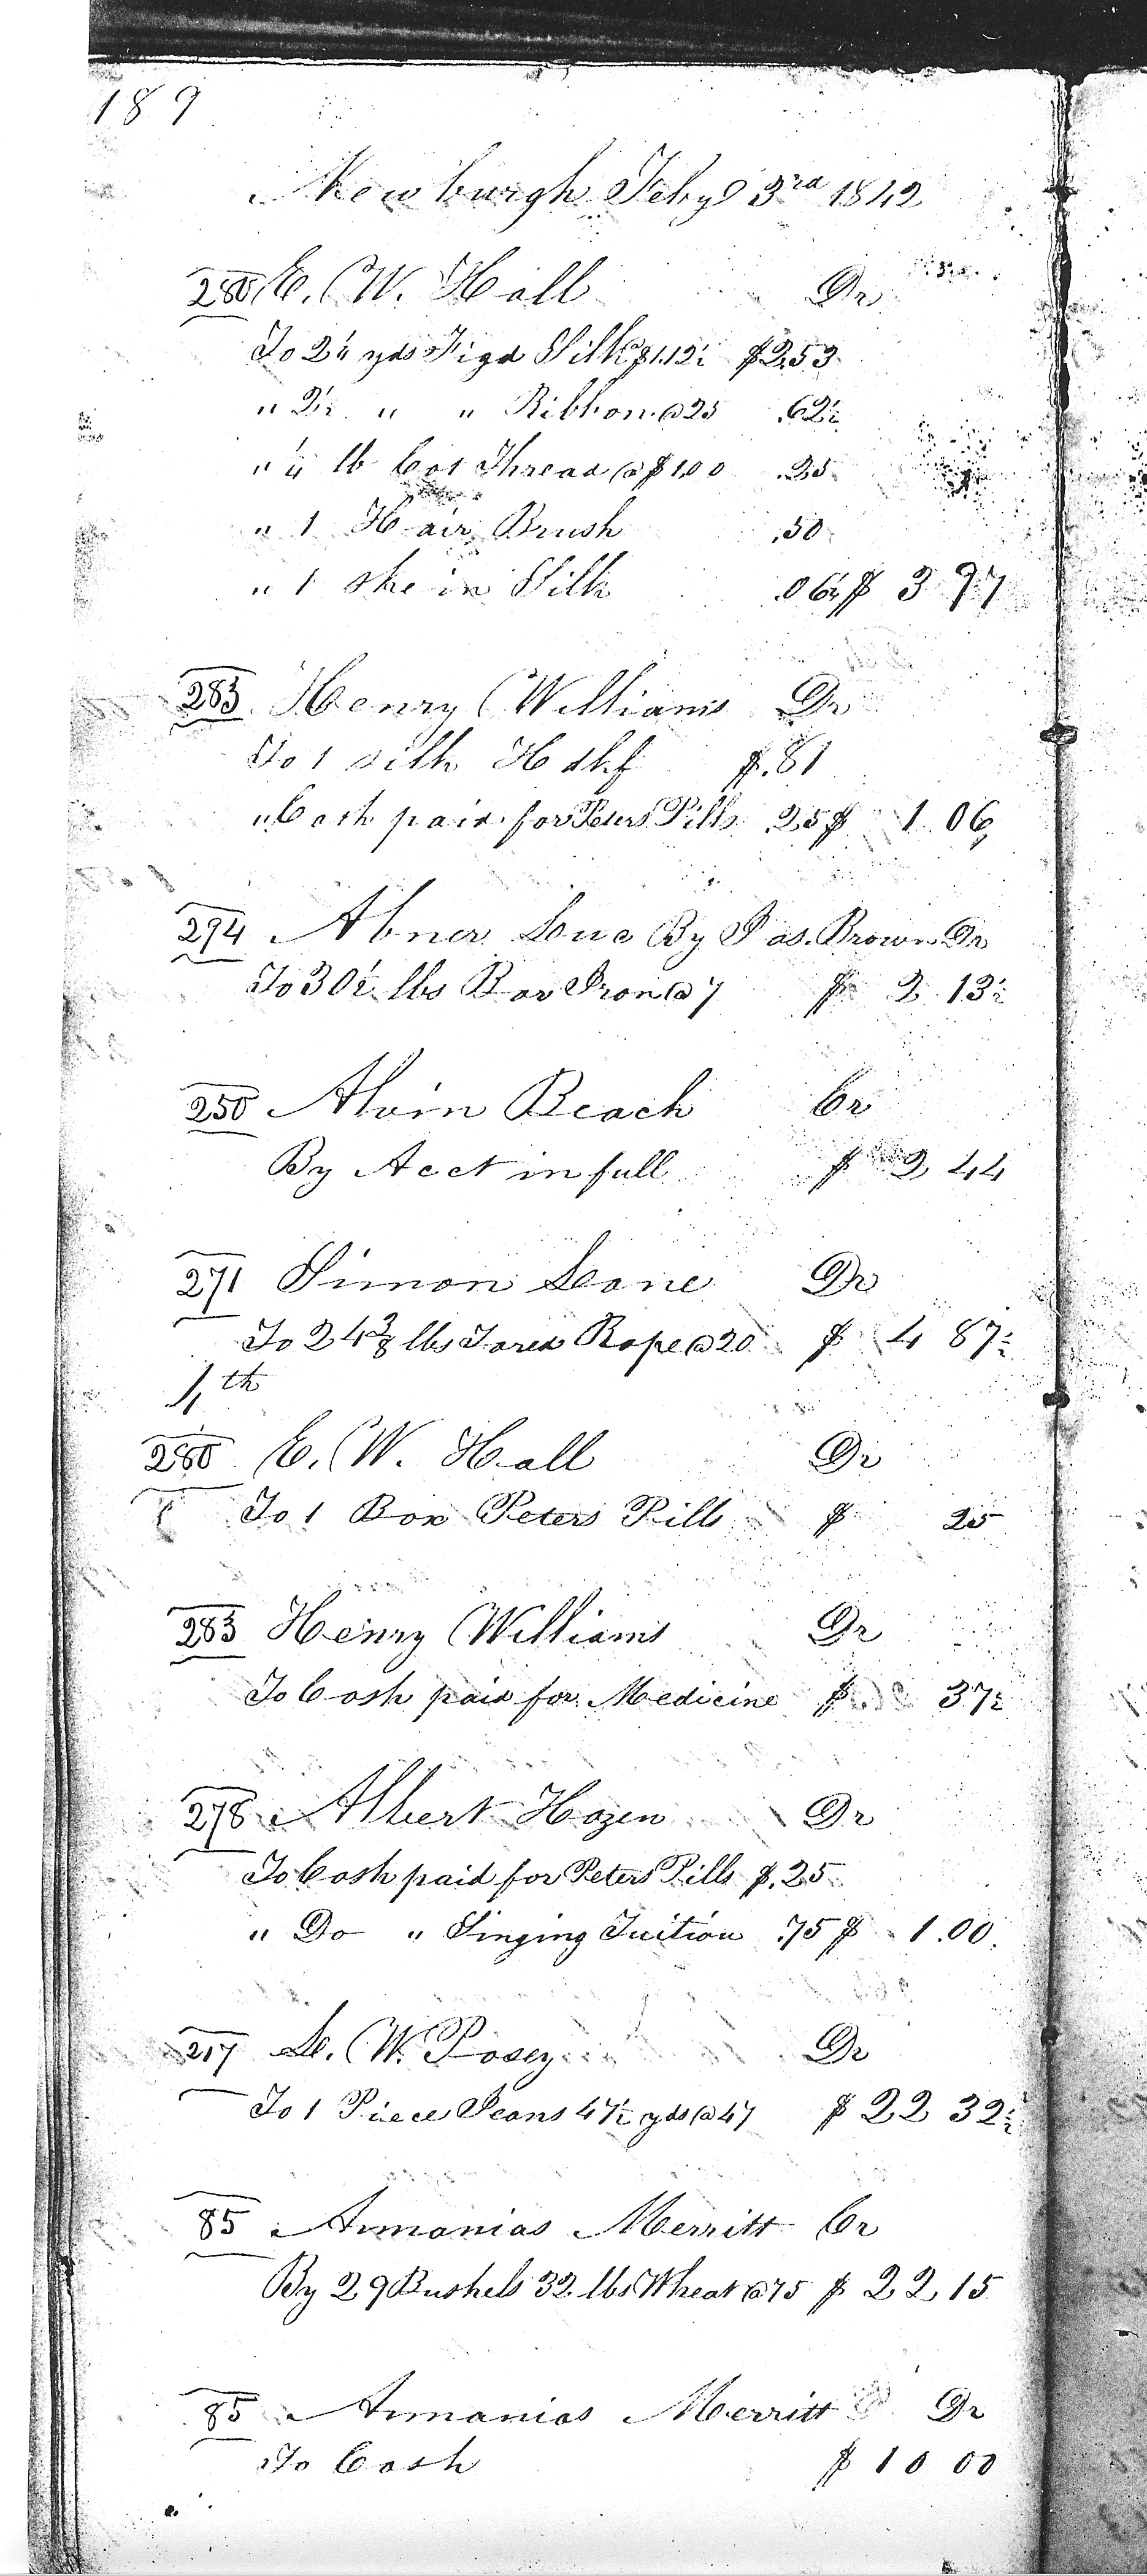 189
Newburgh Feby 3rd 1842
280 E. W. Hall Dr
To 2¼ yds Figd Silk @ $1.12½ $2.53
" 2½ " " Ribbon @ 25 .62½
" ¼ lb Cot Thread @ $1.00 .25
" 1 Hair Brush .50
" 1 skein Silk .06¼ $ 3 97
283 Henry Williams Dr
To 1 silk Hdkf $.81
" Cash paid for Peters Pills .25 $ 1 06
294 Abner Luce By Jas. Brown Dr
To 30½ lbs Bar Iron @ 7 $ 2 13½
250 Alvin Beach Cr
By Acct in full $ 2 44
271 Simon Lane Dr
To 24⅜ lbs Tared Rope @ 20 $ 4 87½
4th
280 E. W. Hall Dr
To 1 Box Peters Pills $ 25
283 Henry Williams Dr
To Cash paid for Medicine $ 37½
278 Albert Hazen Dr
To Cash paid for Peters Pills $.25
" Do " Singing Tuition .75 $ 1.00
217 L. W. Posey Dr
To 1 Piece Jeans 47½ yds @ 47 $ 22 32½
85 Annanias Merritt Cr
By 29 Bushels 32 lbs Wheat @ 75 $ 22 15
85 Annanias Merritt Dr
To Cash $ 10 00